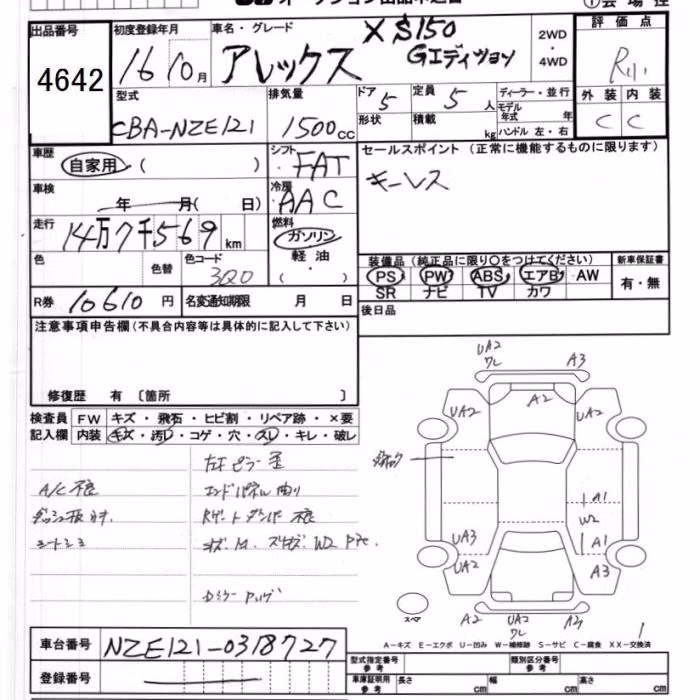 出品番号
4642
初度登録年月
16 10月
車名・グレード
アレックス
X S150
Gエディション
2WD
・
4WD
評価点
外装 内装
C C
型式
CBA-NZE121
排気量
1500cc
ドア 5
形状
定員 5 人
積載 kg
ディーラー・並行
モデル年式 年
ハンドル 左・右
車歴
自家用 ( )
シフト
FAT
セールスポイント(正常に機能するものに限ります)
キーレス
車検
年 月( 日)
冷房
AAC
走行
14万7千569km
燃料
ガソリン
軽油
・
( )
色
色替
色コード
3Q0
装備品(純正品に限り〇をつけてください)
PS PW ABS エアB AW
SR ナビ TV カワ
新車保証書
有・無
R券 10610円
名変通知期限 月 日
後日品
注意事項申告欄(不具合内容等は具体的に記入して下さい)
修復歴 有 〔箇所 〕
検査員記入欄
FW キズ・飛石・ヒビ割・リペア跡・×要
内装 キズ・汚レ・コゲ・穴・スレ・キレ・破レ
A/C不良
エンドパネル曲り
Rゲートダンパ不良
UA2
ワレ
A3
A2
UA2
UA2
A1
W2
A1
UA3
UA2
A3
スペア
A2
UA2
ワレ
A2
A−キズ E−エクボ U−凹み W−補修跡 S−サビ C−腐食 XX−交換済
車台番号
NZE121-0318727
登録番号
型式指定番号
参考
類別区分番号
参考
車庫証明用
参考
長さ cm
幅 cm
高さ cm